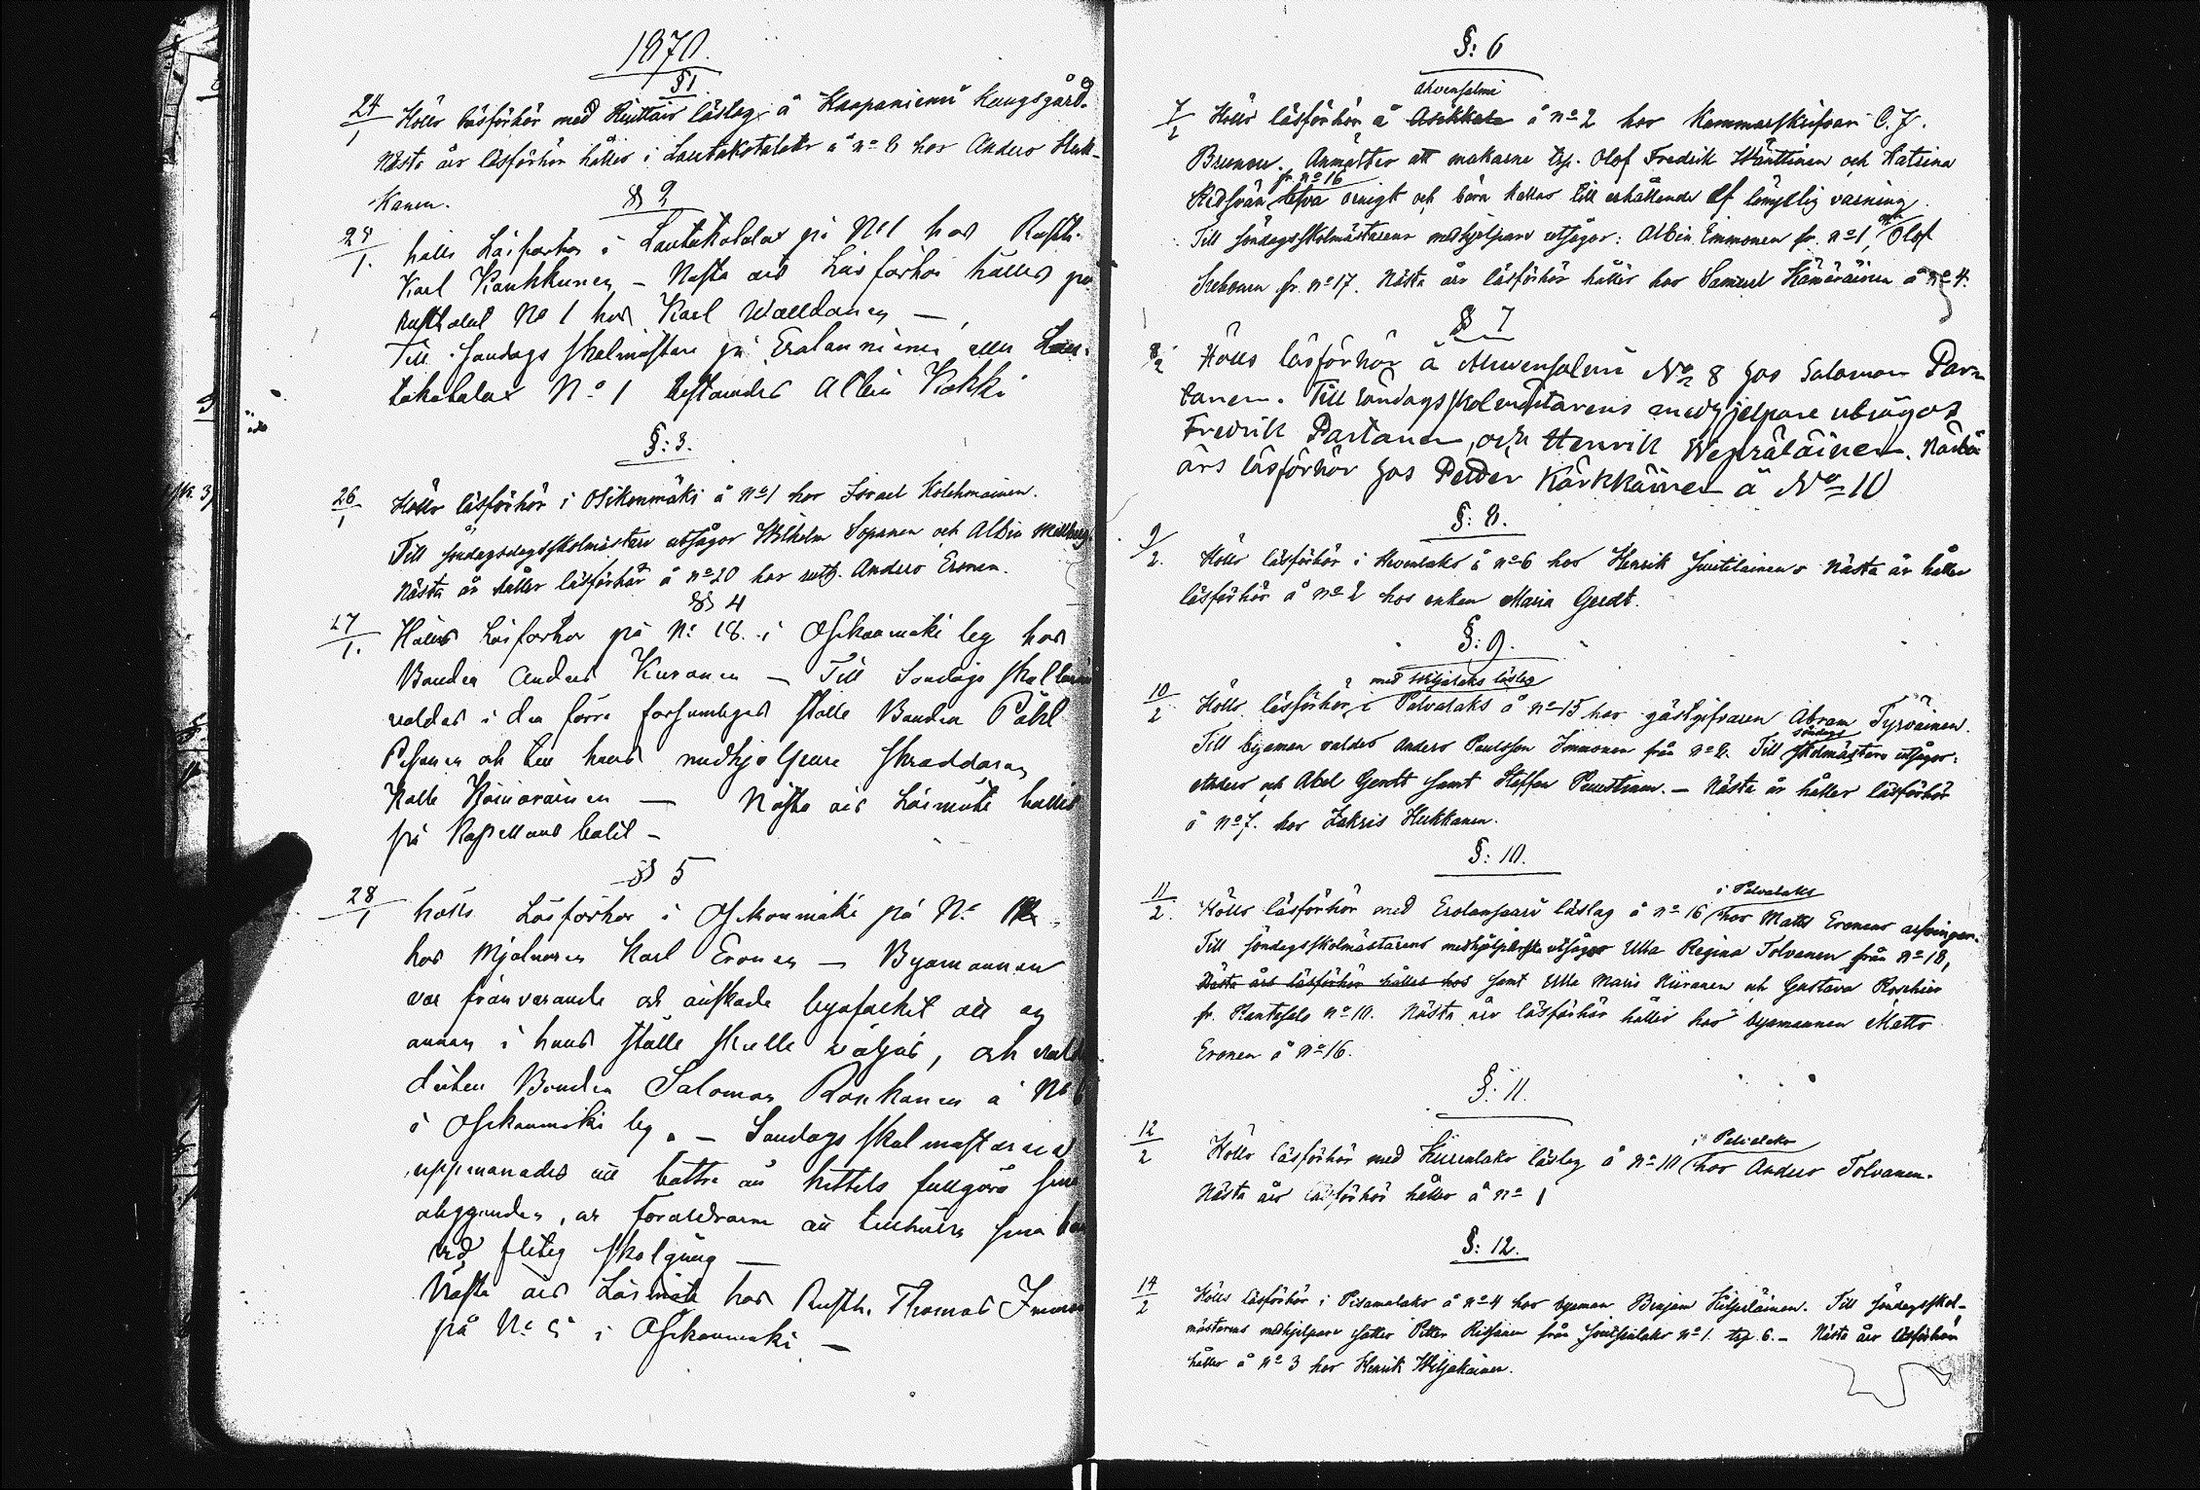 1870.
§ 1
24/1 Hölls läsförhör med Ruttais läslag å Haapaniemi Kungsgård.
Nästa års läsförhör hålles i Lautakotalaks å no 8 hos Anders Huk-
kanen.
§ 2
25/1. hölls Läsförhör i Lautakotalax på No 1 hos Rusth.
Karl Kaukkunen – Nästa års Läsförhör hålles på
rusthålet No 1 hos Karl Walldanen –
Till Söndags skolmästare på Eralanniemi eller Lau-
takotalax No 1 Albin Kokki
§: 3.
26/1 Hölls läsförhör i Osikonmäki å no 1 hos Israel Kolehmainen.
Till söndagsdagsskolmästare utsågos Wilhelm Sopanen och Albin
Nästa år hålles läsförhör å no 20 hos rusth. Anders Eronen.
§ 4
27/1. Hölls Läsförhör på No 18. i Osikonmäki by hos
Bonden Anders Kuronen – Till Söndags
valdes i den förre försumliges ställe Bonden Påhl
och till hans medhjelpare Skräddaren
Kalle Kämäräinen — Nästa års Läsmöte hålles
på Kapellans bohl –
§ 5
28/1 hölls Läsförhör i Osikonmäki på No
hos Mjölnaren Karl Eronen – Byamannen
var frånvarande och önskade byafolket att en
annan i hans ställe skulle väljas, och
dertill Bonden Salomon Ronkanen å No 6
i Osikonmäki by. – Söndags skolmästarne
uppmanades att bättre än hittills fullgöra sina
åligganden, och Föräldrarne att tillhålla sina barn
vid flitig skolgång —
Nästa års Läsmöte hos Rusth. Thomas Immonen
på No 5 i Osikonmäki –
§: 6
Ahvensalmi
7/2 Hölls läsförhör å Asikkala å no 2 hos Kammarskrifvar C. J.
Brunou. Anmältes att makarne trp. Olof Fredrik Wänttinen och Katrina
fr. no 16
lefva oenigt och böra kallas till erhållande af lämplig varning.
Till söndagsskolmästarens medhjelpare utsågos: Albin Immonen fr. no 1, och Olof
fr. no 17. Nästa års läsförhör hålles hos Samuel Kämäräinen å no 4.
§ 7
8/2 Hölls läsförhör å Ahvensalmi No 8 hos Salomon Par-
tanen. Till söndagsskolmästarens medhjelpare utsågos
Fredrik Partanen, och Henrik Wepsäläinen. Nästa
års läsförhör hos Petter Kärkkäinen å No 10
§: 8.
9/2. Hölls läsförhör i å no 6 hos Henrik Juutilainen. Nästa år hålles
läsförhör å no 2 hos enkan Maria Gerdt.
§: 9.
med Wiljalaks läslag
10/2 Hölls läsförhör i Palvalaks å no 15 hos gästgifvaren Abram Tyrväinen.
Till byaman valdes Anders Paulsson Immonen från no 2. Till söndags skolmästare utsågos:
Anders och Abel Gerdt samt Staffan – Nästa år hålles läsförhör
å no 7. hos Zakris Hukkanen.
§: 10.
i Palvalaks
11/2. Hölls läsförhör med Erolansaari läslag å no 16 hos Matts Eronens arfvingar.
Till söndagsskolmästarens medhjelpare utsågos Ulla Regina Tolvanen från no 18,
Nästa års läsförhör hålles hos samt Ulla Maria Niiranen och Gustava Roschier
fr. Rantasalo no 10. Nästa års läsförhör hålles hos byamannen Matts
Eronen å no 16.
§: 11.
i Palvalaks
12/2 Hölls läsförhör med läslag å no 10 hos Anders Tolvanen.
Nästa års läsförhör hålles å no 1
§: 12.
14/2 Hölls läsförhör i Pisamalaks å no 4 hos byaman Benjam Hülpüläinen. Till söndagsskol-
mästarens medhjelpare sattes Petter från no 1. trp. 6. – Nästa års läsförhör
hålles å no 3 hos Henrik Wiljakainen.